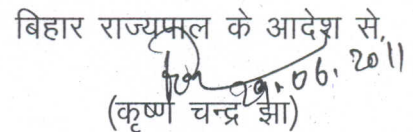 बिहार राज्यपाल के आदेश से,
29.06.2011
(कृष्ण चन्द्र झा)